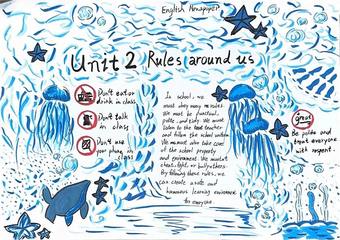 English Newspaper
Unit 2 Rules around us
Don't eat or
drink in class
Don't talk
in class
Don't use
your phone in
class
In school, we
must obey many rules.
We must be punctual,
polite, and tidy. We must
listen to the teacher
and follow the school uniform.
We must also take care
of the school property
and environment. We mustn't
cheat, fight, or bully others.
By following these rules, we
can create a safe and
harmonious learning environment
for everyone
great
Be polite and
treat everyone
with respect.